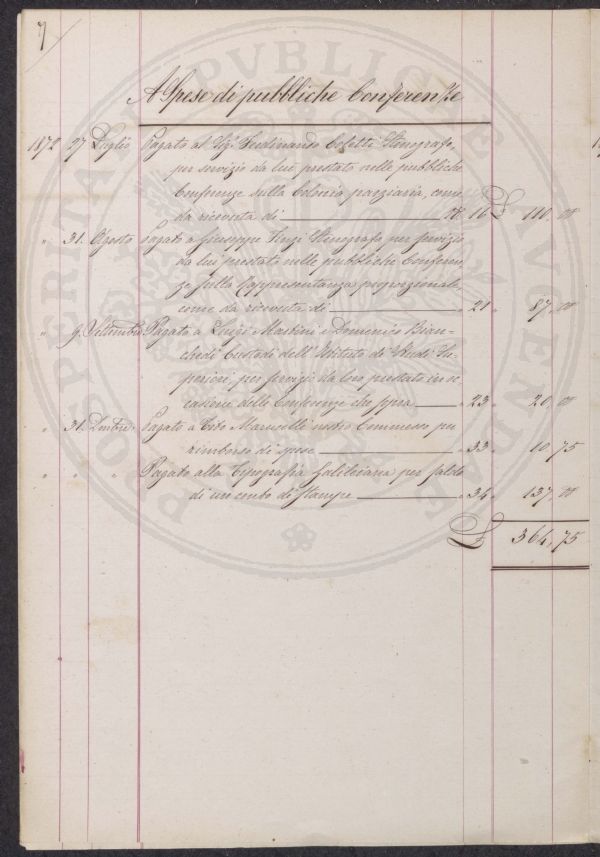 7
A Spese di pubbliche Conferenze
1872 27 Luglio Pagato al Sig. Ferdinando Coletti Stenografo,
per servizio da lui prestato nelle pubbliche
Conferenze sulla Colonia parziaria, come
da ricevuta di N. 16 £ 110,00
" 31. Agosto Pagato a Giuseppe Stenografo per servizio
da lui prestato nelle pubbliche Conferen-
ze sulla Rappresentanza proporzionale,
come da ricevuta di " 21 " 87,00
" 9. Settembre Pagato a Luigi Martini e Domenico Bian-
chedi Custodi dell'Istituto di Studi Su-
periori, per servizi da loro prestato in o-
casione delle Conferenze che sopra " 23 " 20,00
" 31. Pagato a Tito nostro Commesso per
rimborso di spese " 33 " 10,75
" " " Pagato alla Tipografia Galileiana per saldo
di un conto di stampe " 34 " 137,00
£ 364,75
PROSPERITATI PUBLICAE AUGENDAE